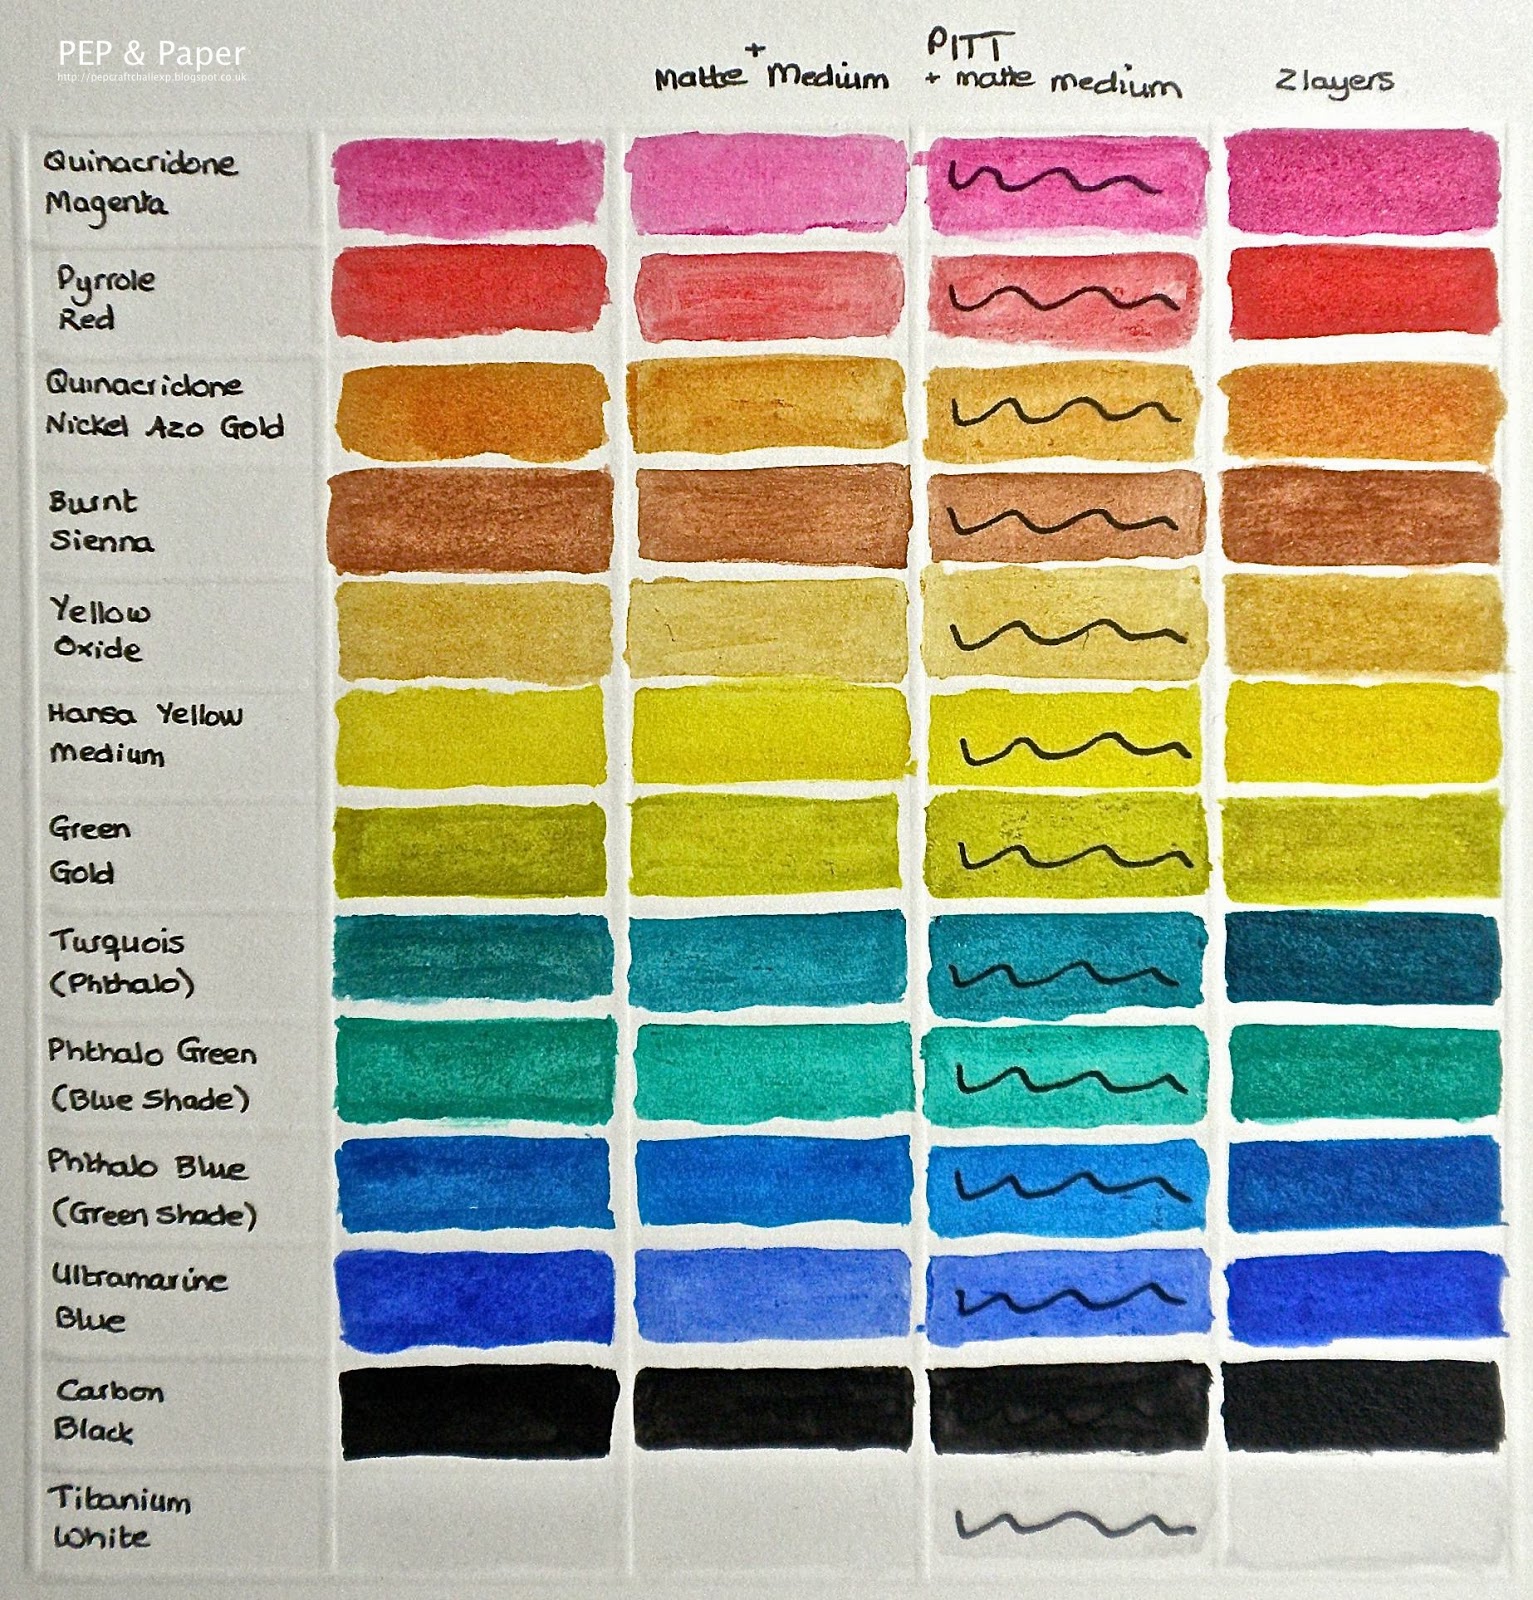 PEP & Paper
http://pepcraftchallexp.blogspot.co.uk
+
Matte Medium
PITT
+ matte medium
2 layers
Quinacridone
Magenta
Pyrrole
Red
Quinacridone
Nickel Azo Gold
Burnt
Sienna
Yellow
Oxide
Hansa Yellow
Medium
Green
Gold
Turquois
(Phthalo)
Phthalo Green
(Blue Shade)
Phthalo Blue
(Green Shade)
Ultramarine
Blue
Carbon
Black
Titanium
White